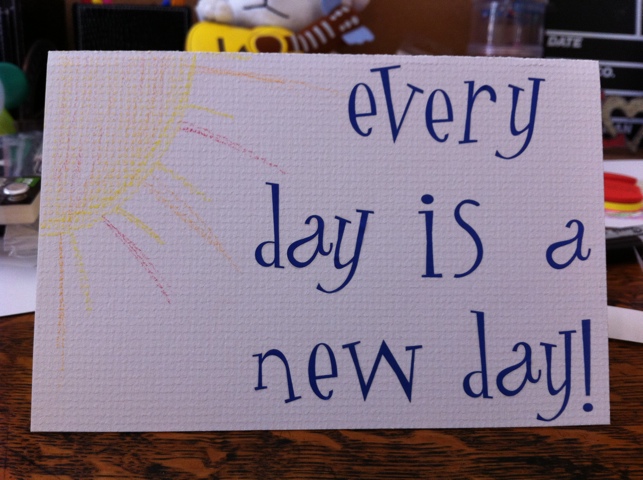 every
day is a
new day!
DATE